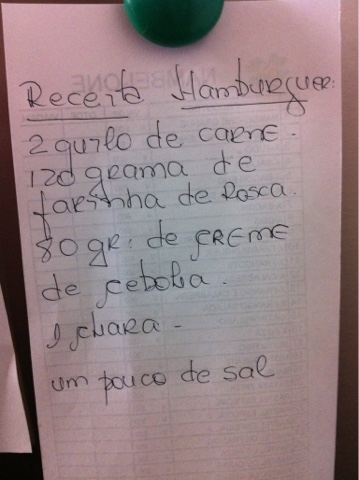 Receita Hamburguer:
2 quilo de carne.
120 grama de
farinha de Rosca.
80 gr. de CREME
de cebola.
1 chara -
um pouco de sal